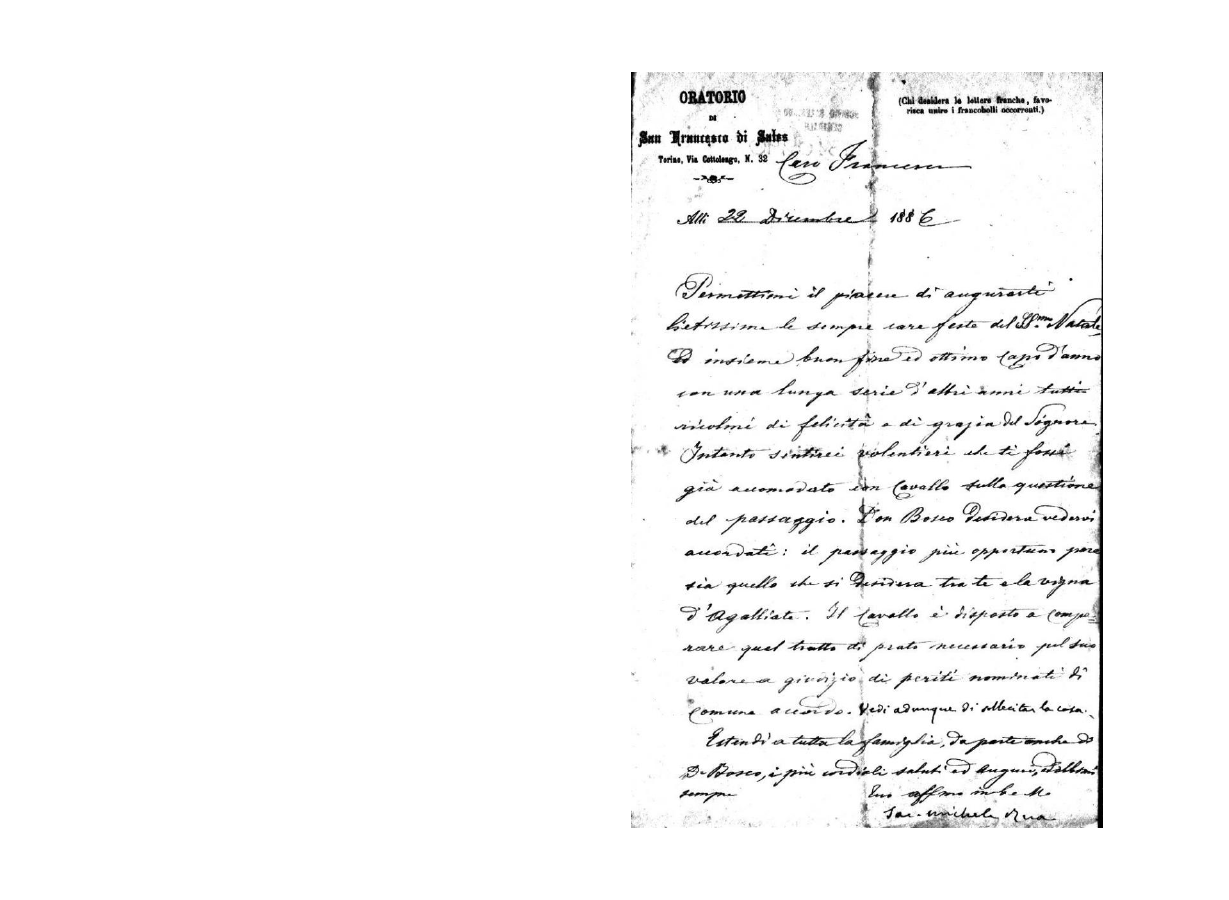 ORATORIO
DI
San Francesco di Sales
Torino, Via Cottolengo, N. 32
(Chi desidera le lettere franche, favo-
risca unire i francobolli occorrenti.)
Caro Francesco
Alli 22 Dicembre 1886
Permettimi il piacere di augurarti
lietissime le sempre care feste del SS.mo Natale
Ed insieme buon fine ed ottimo capo d'anno
con una lunga serie d'altri anni tutti
ricolmi di felicità e di grazia del Signore.
Intanto sentirei volentieri che ti fossi
già accomodato con Cavallo sulla questione
del passaggio. Don Bosco desidera vedervi
accordati: il passaggio più opportuno pare
sia quello che si desidera tra te e la vigna
d'Agalliate. Il Cavallo è disposto a compe-
rare quel tratto di prato necessario pel suo
valore a giudizio di periti nominati di
comune accordo. Vedi adunque di sollecitar la cosa.
Estendi a tutta la famiglia, da parte anche di
D. Bosco, i più cordiali saluti ed auguri, ed abbimi
sempre
Tuo aff.mo in G. e M.
Sac. Michele Rua